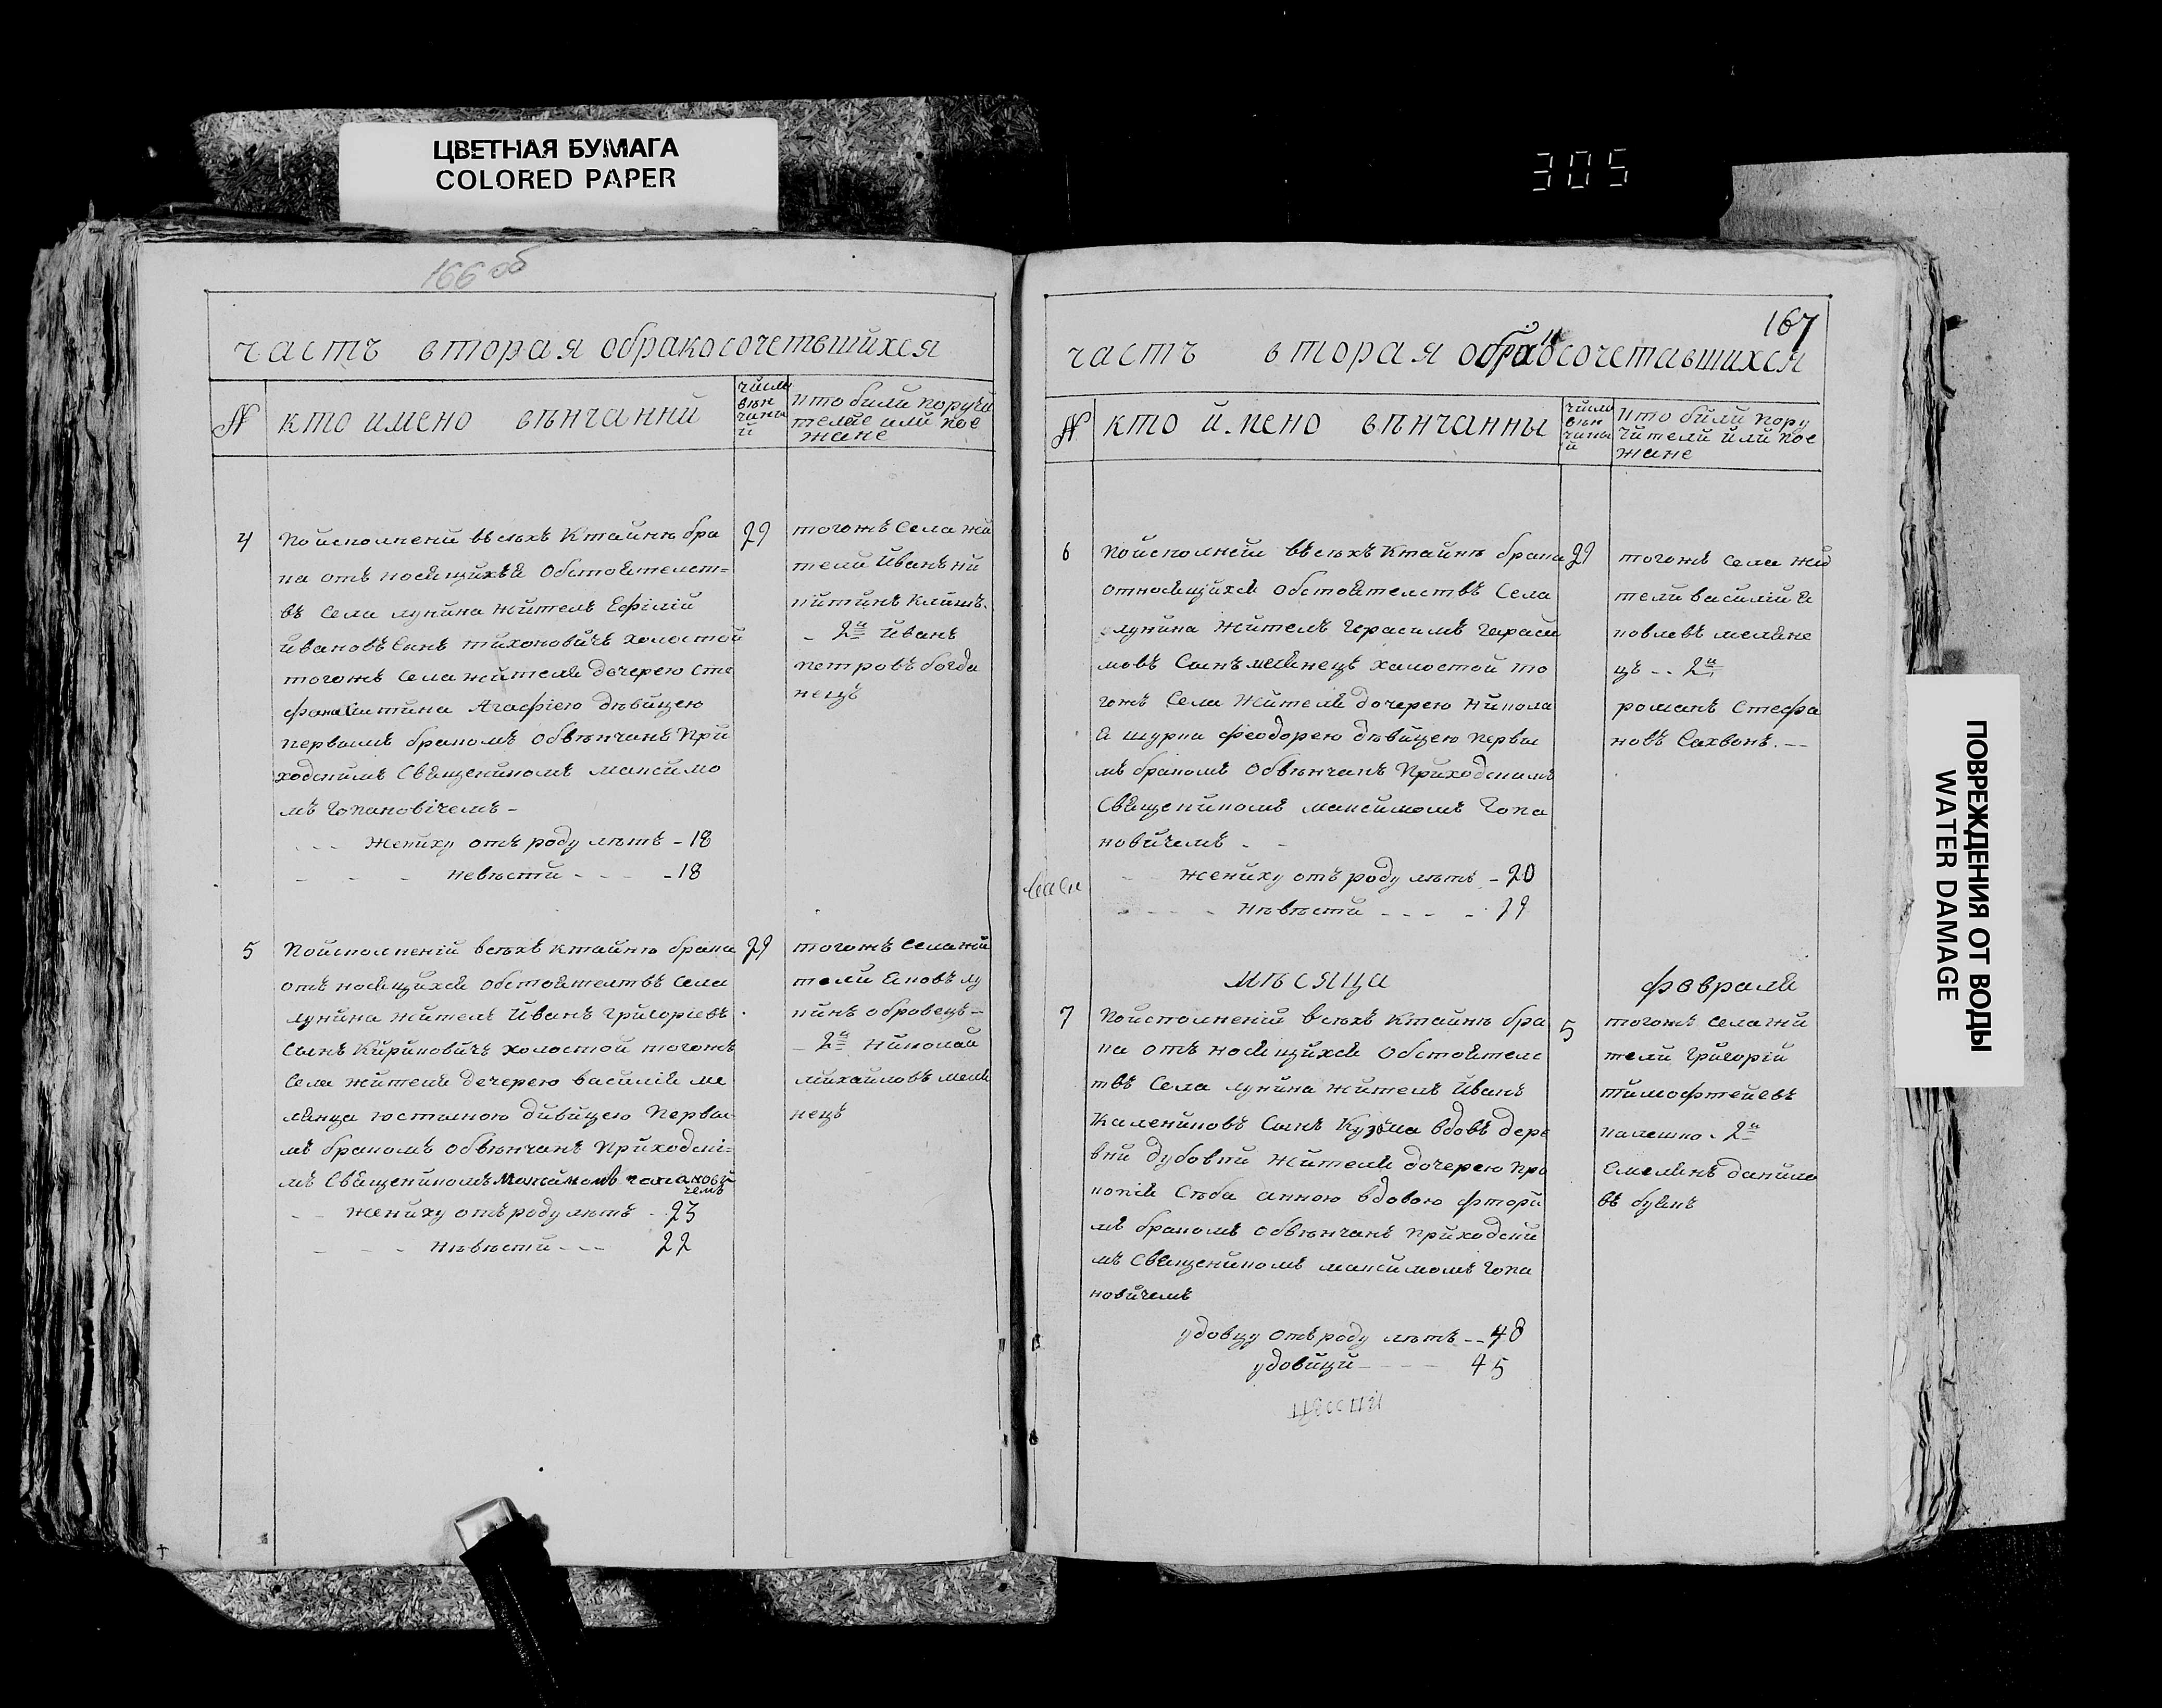 ЦВЕТНАЯ БУМАГА
COLORED PAPER
305
166 об
часть вторая обракосочетвшийхся
№
кто имено вѣнчанний
число
вѣн
чаны
й
кто били поручи
телѣе или пое
жане
4
По исполнений всѣхъ Ктайнѣ бра
ка отъ носящихъся обстоятелст=
въ села лунина жытель Ефімій
йвановъ Синъ тихоновичъ холостой
тогожъ села жителя дочерею Сте
фана Агафіею дѣвицею
первымъ бракомъ обвѣнчанъ При
ходскимъ Священикомъ максимо
мъ гопановічемъ -
жениху отъ роду лѣтъ - 18
невѣсти - - - - 18
29
тогожъ Села жи
тели Иванъ ни
китинъ клишъ.
- 2й Иванъ
петровъ богда
нецъ
5
По исполненій всѣхъ ктайнѣ брака
отъ носящихся обстоятелтвъ Села
лунина жытель Иванъ Григоріевъ
Сынъ Кириковичъ холостой тогожъ
Села жителя дечерею василія ме
лянца юстиною дивицею Первы
мъ бракомъ обвѣнчанъ Приходскі=
мъ Священикомъ Максимомъ гопанови
чемъ
жениху отъ роду лѣтъ - 23
нѣвѣсти - - - 22
29
тогожъ села жи
тели Яковъ лу
кинъ обровецъ -
- 2й Николай
михайловъ меля
нецъ
167
часть вторая обракосочетавшихся
№
кто и.мено вѣнчанны
число
вѣн
чаны
й
кто били пору
чители или пое
жане
6
По исполнении всѣхъ Ктайнѣ брака
относящихся обстоятелствъ Села
лунина жытель Герасимъ гераси
мовъ Сынъ мелянецъ халостой то
гожъ Села жителя дочерею Никола
я шурпа феодорею дѣвицею первы
мъ бракомъ обвѣнчанъ Приходскимъ
Священикомъ максимомъ Гопа
новичемъ - -
жениху отъ роду лѣтъ - 20
нѣвѣсти - - - - 29
29
тогожъ села жи
тели василий я
ковлевъ меляне
цъ - - 2й
романъ Стефа
новъ Сахвонъ. --
мѣсяца
февраля
7
По исполненій всѣхъ Ктайнѣ бра
ка отъ носящихся обстоятелс
твъ Села лунина жытель Иванъ
Калениковъ Сынъ Кузьма вдовъ дере
вни дубовки жителя дочерею про
копія Сѣба анною вдовою фтори
мъ бракомъ обвѣнчанъ приходски
мъ Священикомъ максимомъ гопа
новичемъ
удовцу отъ роду лѣтъ - - 48
удовици - - - - 45
5
тогожъ села жи
тели григорій
тимофтейевъ
палешко. 2й
Емелянъ данило
въ буянъ
ПОВРЕЖДЕНИЯ ОТ ВОДЫ
WATER DAMAGE